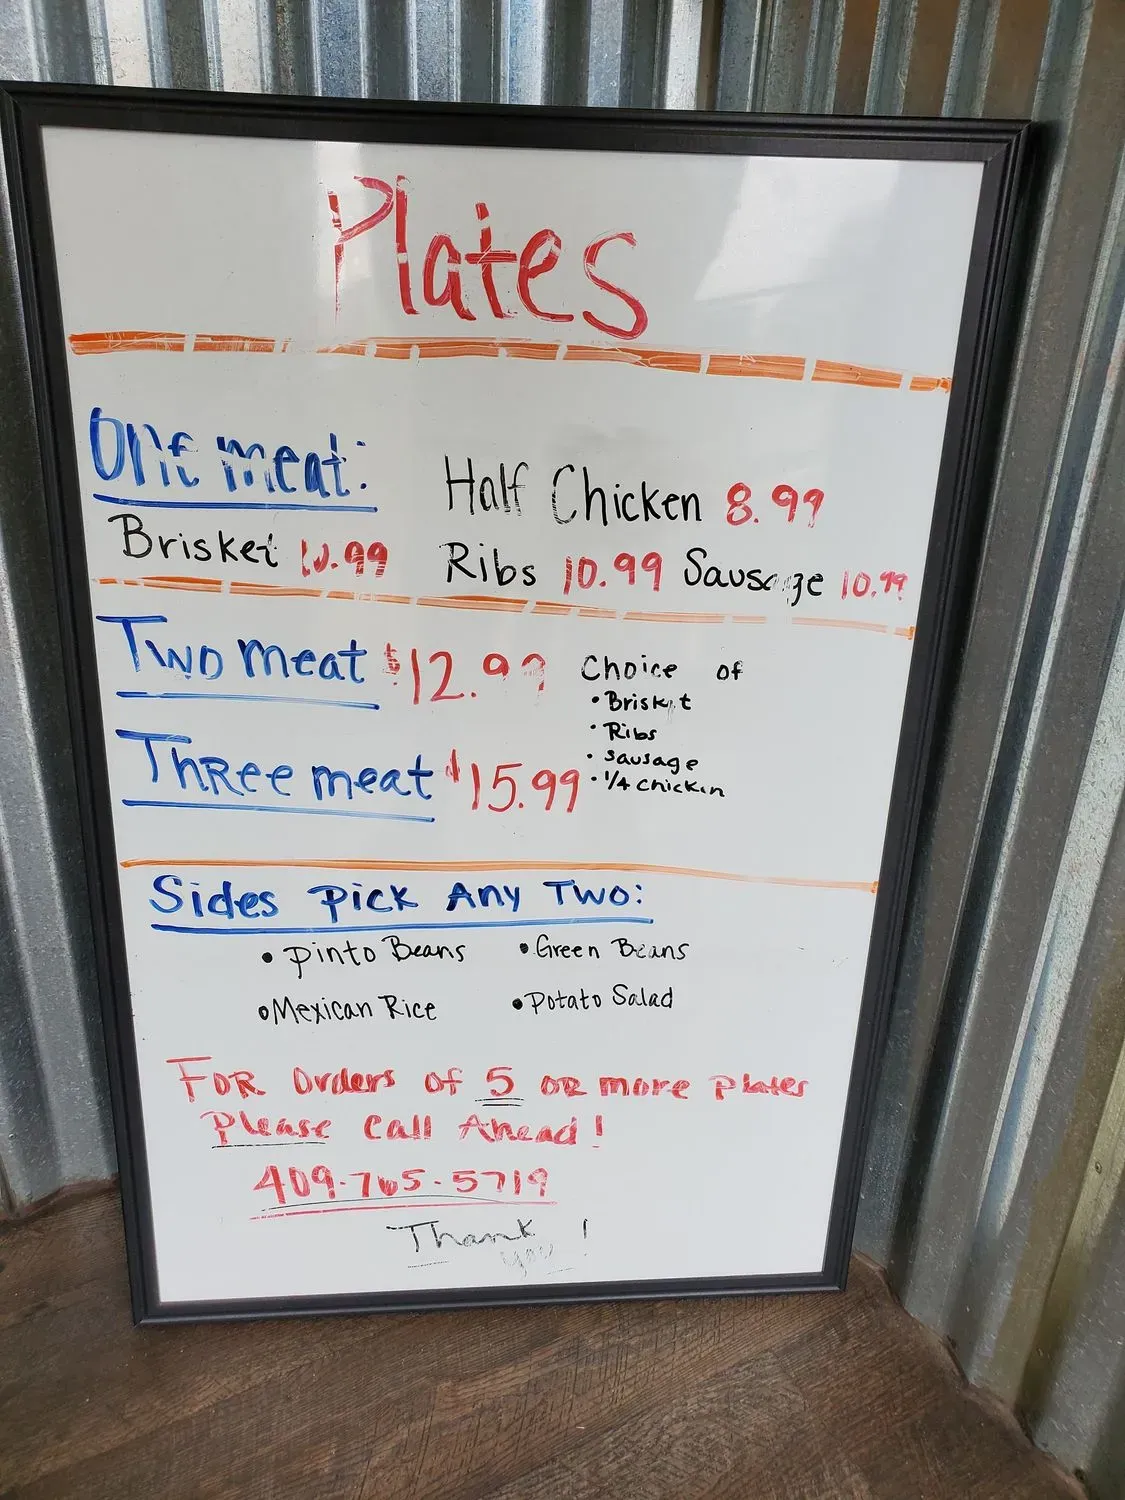 Plates
One meat:
Half Chicken 8.99
Brisket 10.99 Ribs 10.99 Sausage 10.99
Two meat $12.99
Choice of
• Brisket
• Ribs
• Sausage
• 1/4 chicken
Three meat $15.99
Sides Pick Any Two:
• Pinto Beans • Green Beans
• Mexican Rice • Potato Salad
For Orders of 5 or more Plates
Please Call Ahead!
409-765-5719
Thank you!